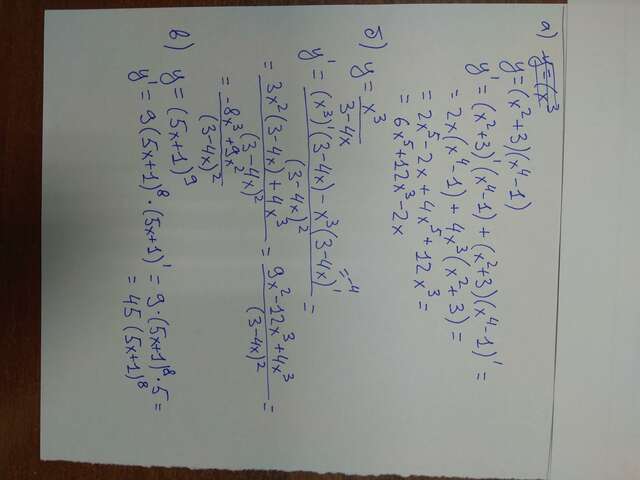 а) y=(x³
y=(x²+3)(x⁴-1)
y'=(x²+3)'(x⁴-1)+(x²+3)(x⁴-1)'=
=2x(x⁴-1)+4x³(x²+3)=
=2x⁵-2x+4x⁵+12x³=
=6x⁵+12x³-2x
б) y=x³/(3-4x)
y'=((x³)'(3-4x)-x³(3-4x)'⁼⁻⁴)/(3-4x)²=
=(3x²(3-4x)+4x³)/(3-4x)²=(9x²-12x³+4x³)/(3-4x)²=
=(-8x³+9x²)/(3-4x)²
в) y=(5x+1)⁹
y'=9(5x+1)⁸·(5x+1)'=9·(5x+1)⁸·5=
=45(5x+1)⁸